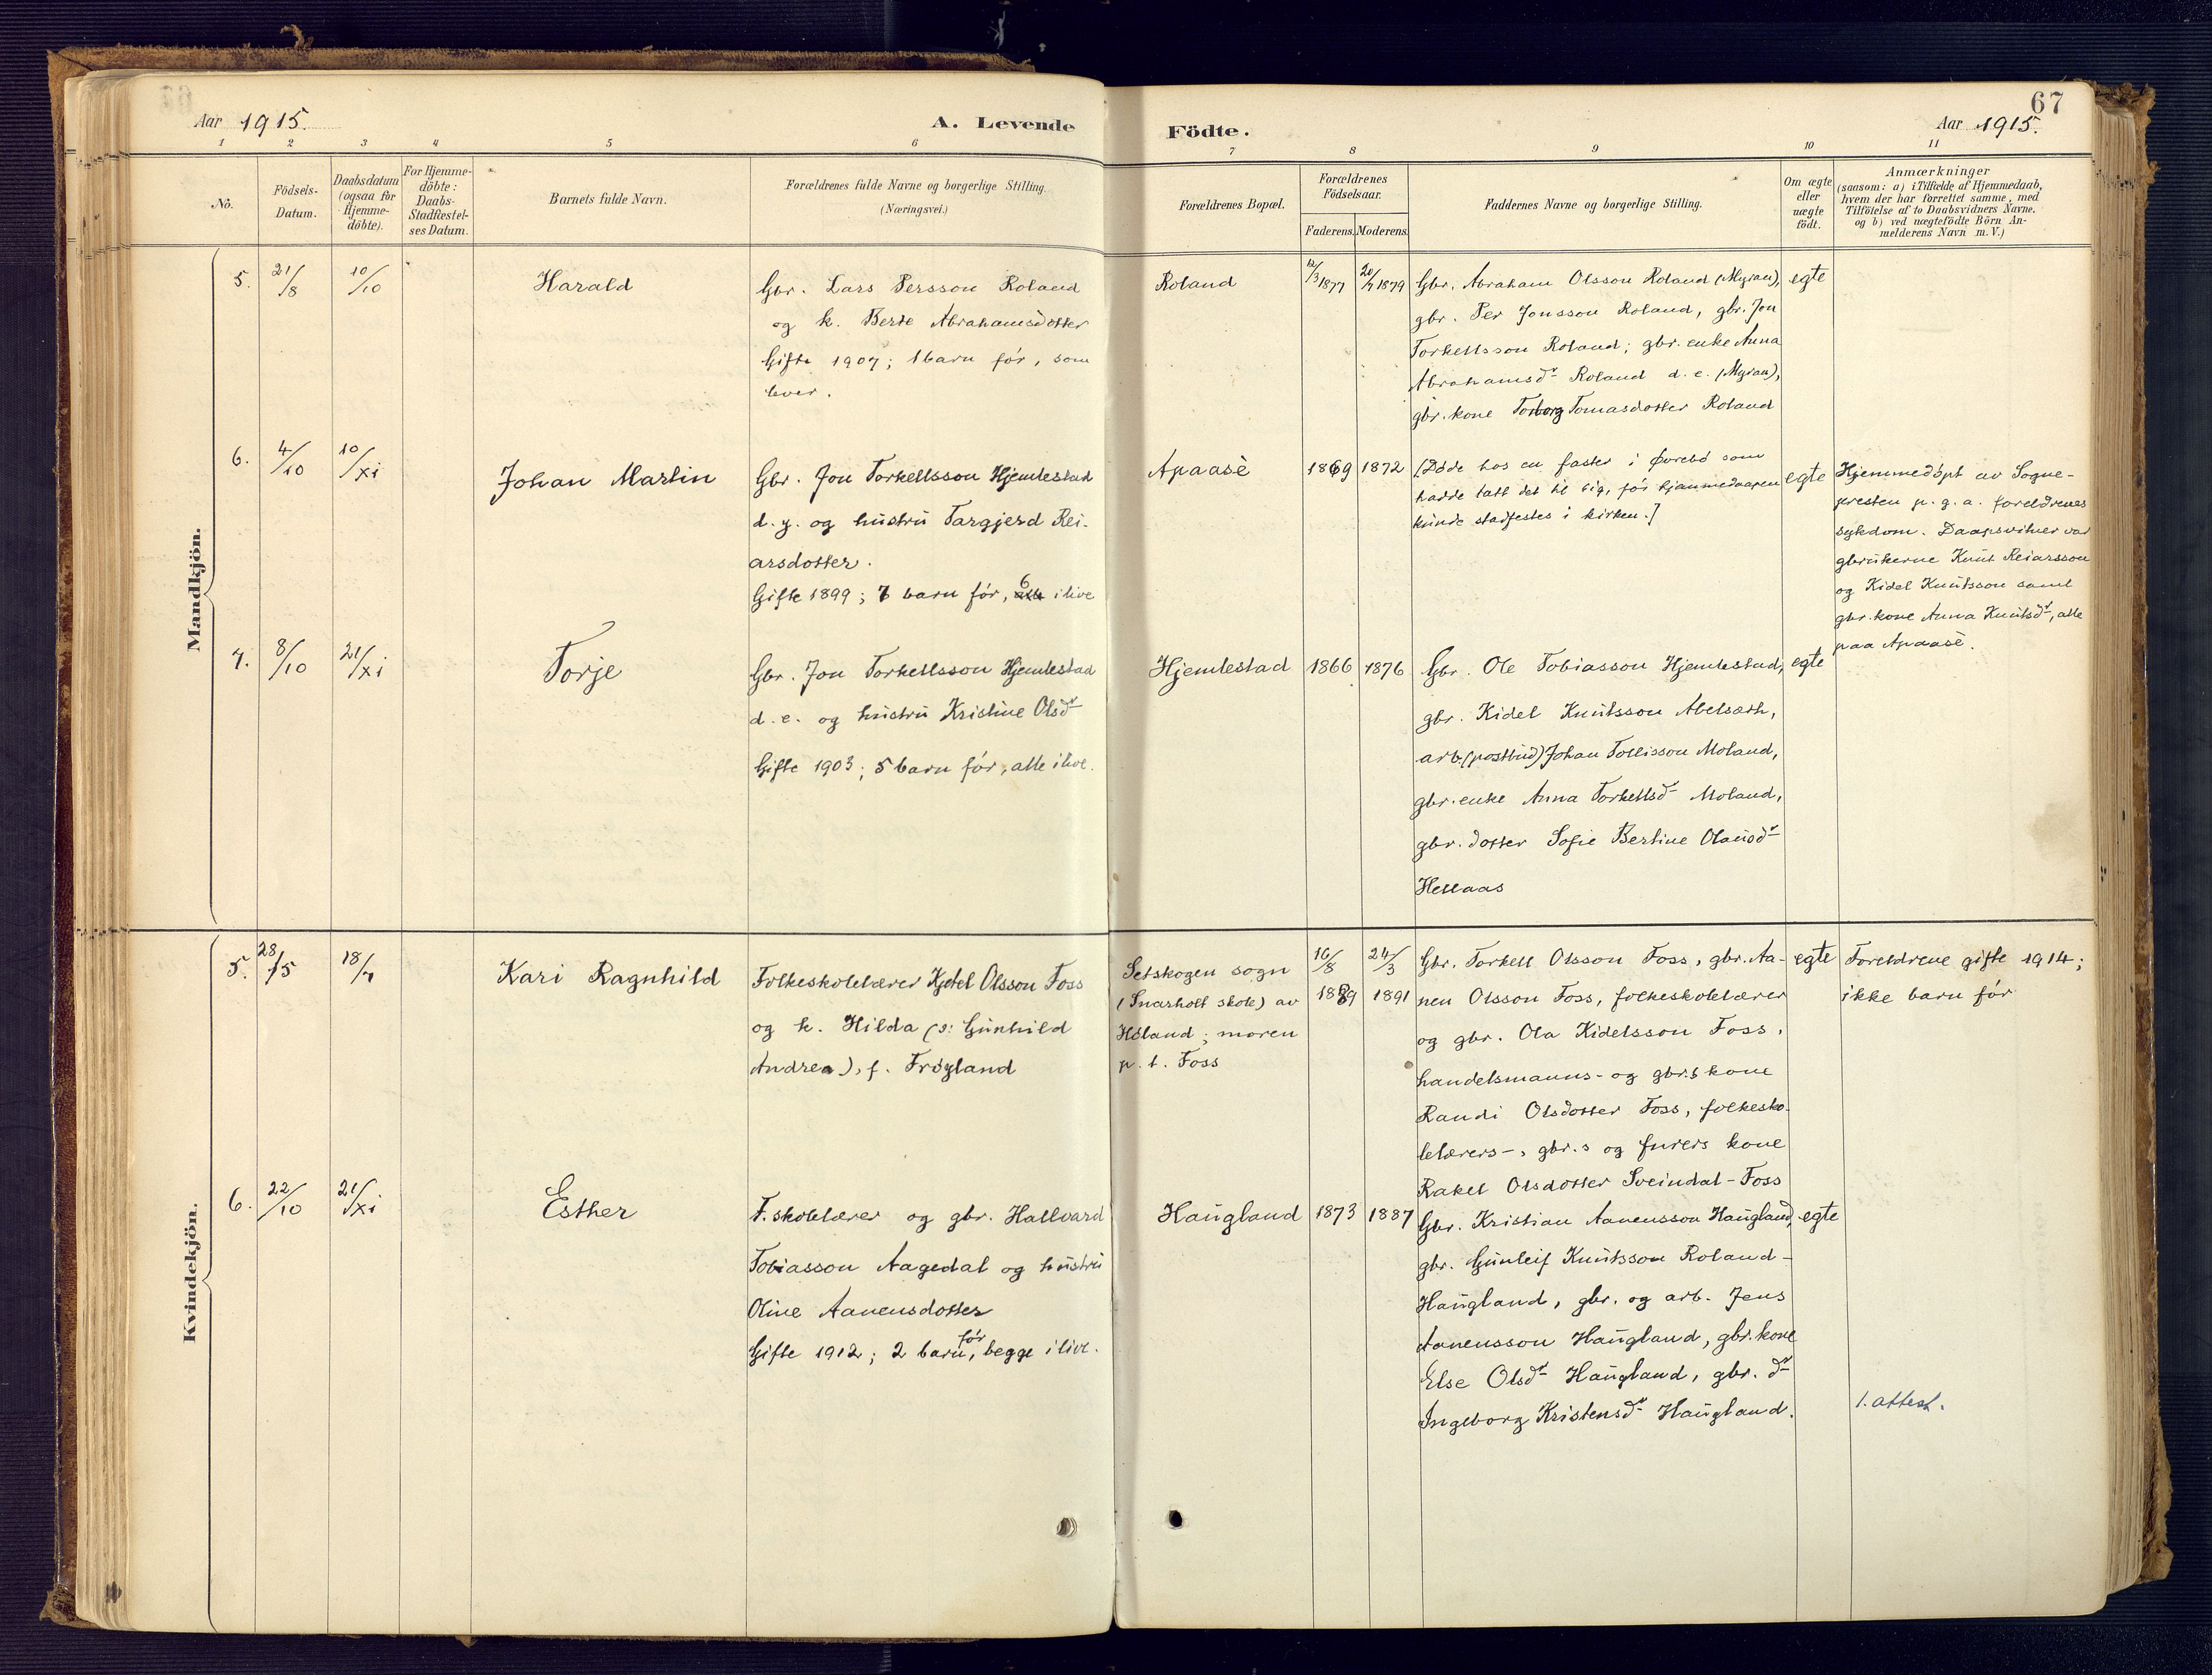 67
Aar 1915.
A. Levende Födte.
Aar 1915.
1 2 3 4 5 6 7 8 9 10 11
No.
Födsels-
Datum.
Daabsdatum
(ogsaa for
Hjemme-
döbte).
For Hjemme-
döbte:
Daabs-
Stadfæstel-
ses Datum.
Barnets fulde Navn.
Forældrenes fulde Navne og borgerlige Stilling.
(Næringsvei.)
Forældrenes Bopæl.
Forældrenes
Födselsaar.
Faderens. Moderens.
Faddernes Navne og borgerlige Stilling.
Om ægte
eller
uægte
födt.
Anmærkninger
(saasom: a) i Tilfælde af Hjemmedaab,
hvem der har forrettet samme, med
Tilföielse af to Daabsvidners Navne,
og b) ved uægtefödte Börn An-
melderens Navn m. V.)
Mandkjön.
5. 21/8 10/10 Harald
Gbr. Lars Persson Roland
og k. Berte Abrahamsdotter
Gifte 1907; 1 barn før, som
lever.
Roland
12/3 1877 20/7 1879
Gbr. Abraham Olsson Roland (Myran),
gbr. Per Jonsson Roland, gbr. Jon
Torkellsson Roland; gbr. enke Anna
Abrahamsdr Roland d. e. (Myran),
gbr. kone Torborg Tomasdotter Roland
egte
6. 4/10 10/XI Johan Martin
Gbr. Jon Torkellsson Hjemlestad
d. y. og hustru Targjerd Rei-
arsdotter.
Gifte 1899; 7 barn før, 6 i live
Apaasè
1869 1872
[Døde hos en faster i Øvrebø som
hadde tatt det til sig, før hjemmedaapen
kunde stadfestes i kirken.]
egte
Hjemmedøpt av Sogne-
presten p. g. a. foreldrenes
sykdom. Daapsvitner var
gbrukerne Knut Reiarsson
og Kidel Knutsson samt
gbr. kone Anna Knutsdr, alle
paa Apaasè.
7. 8/10 21/XI Torje
Gbr. Jon Torkellsson Hjemlestad
d. e. og hustru Kristine Olsdr
Gifte 1903; 5 barn før, alle i live.
Hjemlestad
1866 1876
Gbr. Ole Tobiasson Hjemlestad,
gbr. Kidel Knutsson Abelsæth,
arb. (postbud) Johan Tollisson Moland,
gbr. enke Anna Torkellsdr Moland,
gbr. dotter Sofie Bertine Olausdr
Hellaas
egte
Kvindekjön.
5. 28/5 18/7 Kari Ragnhild
Folkeskolelærer Kjetel Olsson Foss
og k. Hilda (ɔ: Gunhild
Andrea), f. Frøyland
Setskogen sogn
(Snarholt skole) av
Høland; moren
p. t. Foss
16/8 1889 24/3 1891
Gbr. Torkell Olsson Foss, gbr. Aa-
nen Olsson Foss, folkeskolelærer
og gbr. Ola Kidelsson Foss,
handelsmanns- og gbr.s kone
Randi Olsdotter Foss, folkesko-
lelærers-, gbr.s og furers kone
Rakel Olsdotter Sveindal-Foss
egte
Foreldrene gifte 1914;
ikke barn før
6. 22/10 21/XI Esther
F.skolelærer og gbr. Hallvard
Tobiasson Aagedal og hustru
Oline Aanensdotter
Gifte 1912; 2 barn før, begge i live.
Haugland
1873 1887
Gbr. Kristian Aanensson Haugland,
gbr. Gunleif Knutsson Roland-
Haugland, gbr. og arb. Jens
Aanensson Haugland, gbr. kone
Else Olsdr Haugland, gbr. dr
Ingeborg Kristensdr Haugland.
egte
1. attest.